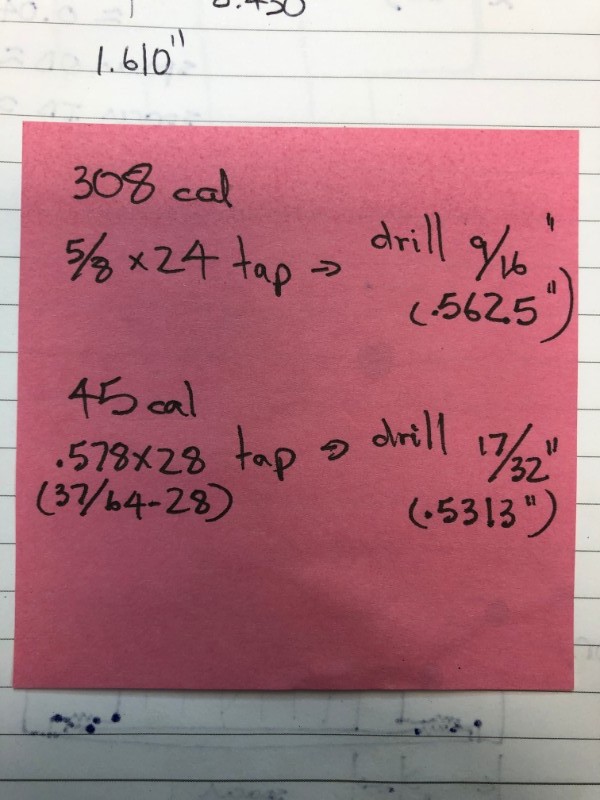 1.610"
308 cal
5/8 x 24 tap → drill 9/16"
(.5625")
45 cal
.578x28 tap → drill 17/32"
(37/64-28) (.5313")